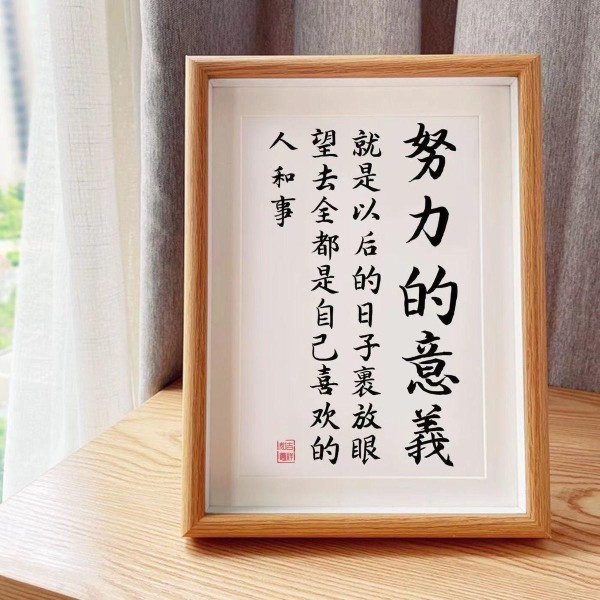 努力的意義
就是以后的日子裹放眼
望去全都是自己喜欢的
人和事